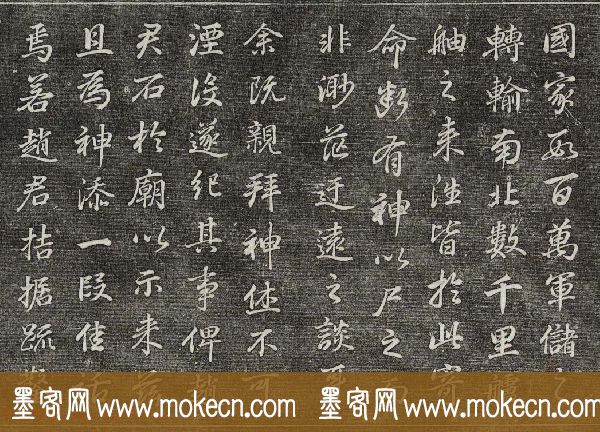 國家數百萬軍儲
轉輸南北數千里
舳之来淮皆於此寄
命斷有神以尸之
非渺茫迂遠之談
余既親拜神庥不可
湮没遂纪其事俾
君石於廟以示来
且為神添一段佳
焉若趙君拮据䟽
墨客网 www.mokecn.com 墨客网 www.mokecn.com